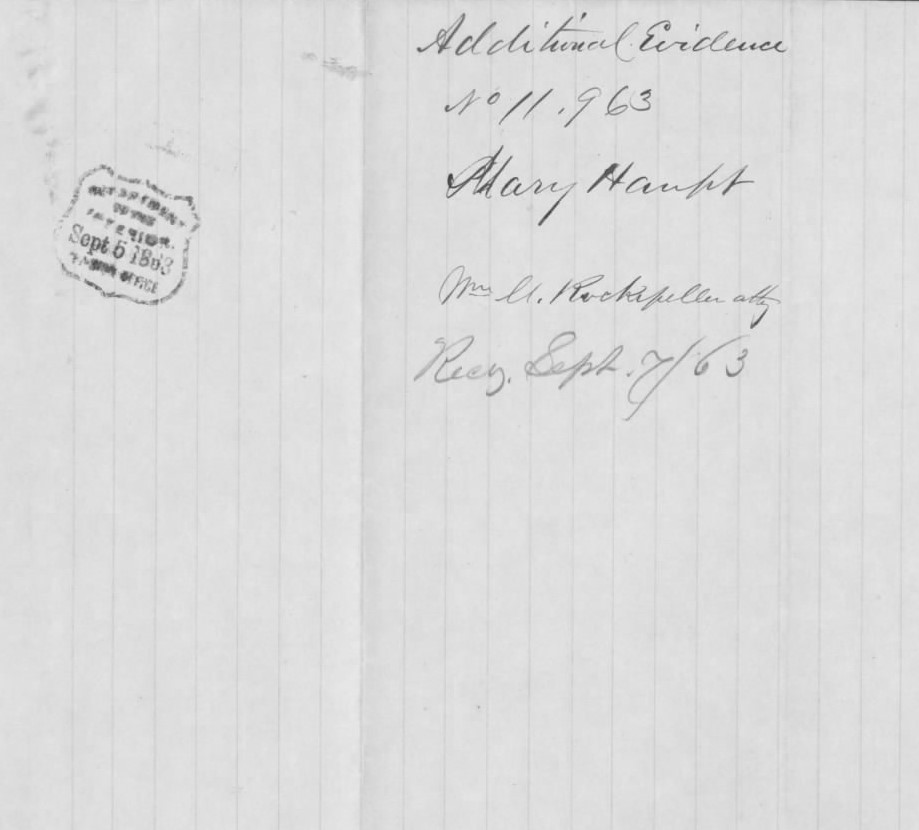 Additional Evidence
No 11.963
Mary Haupt
Wm Rockefeller atty
Recd. Sept. 7/63
DEPARTMENT
OF THE
INTERIOR.
Sept 5 1863
PENSION OFFICE